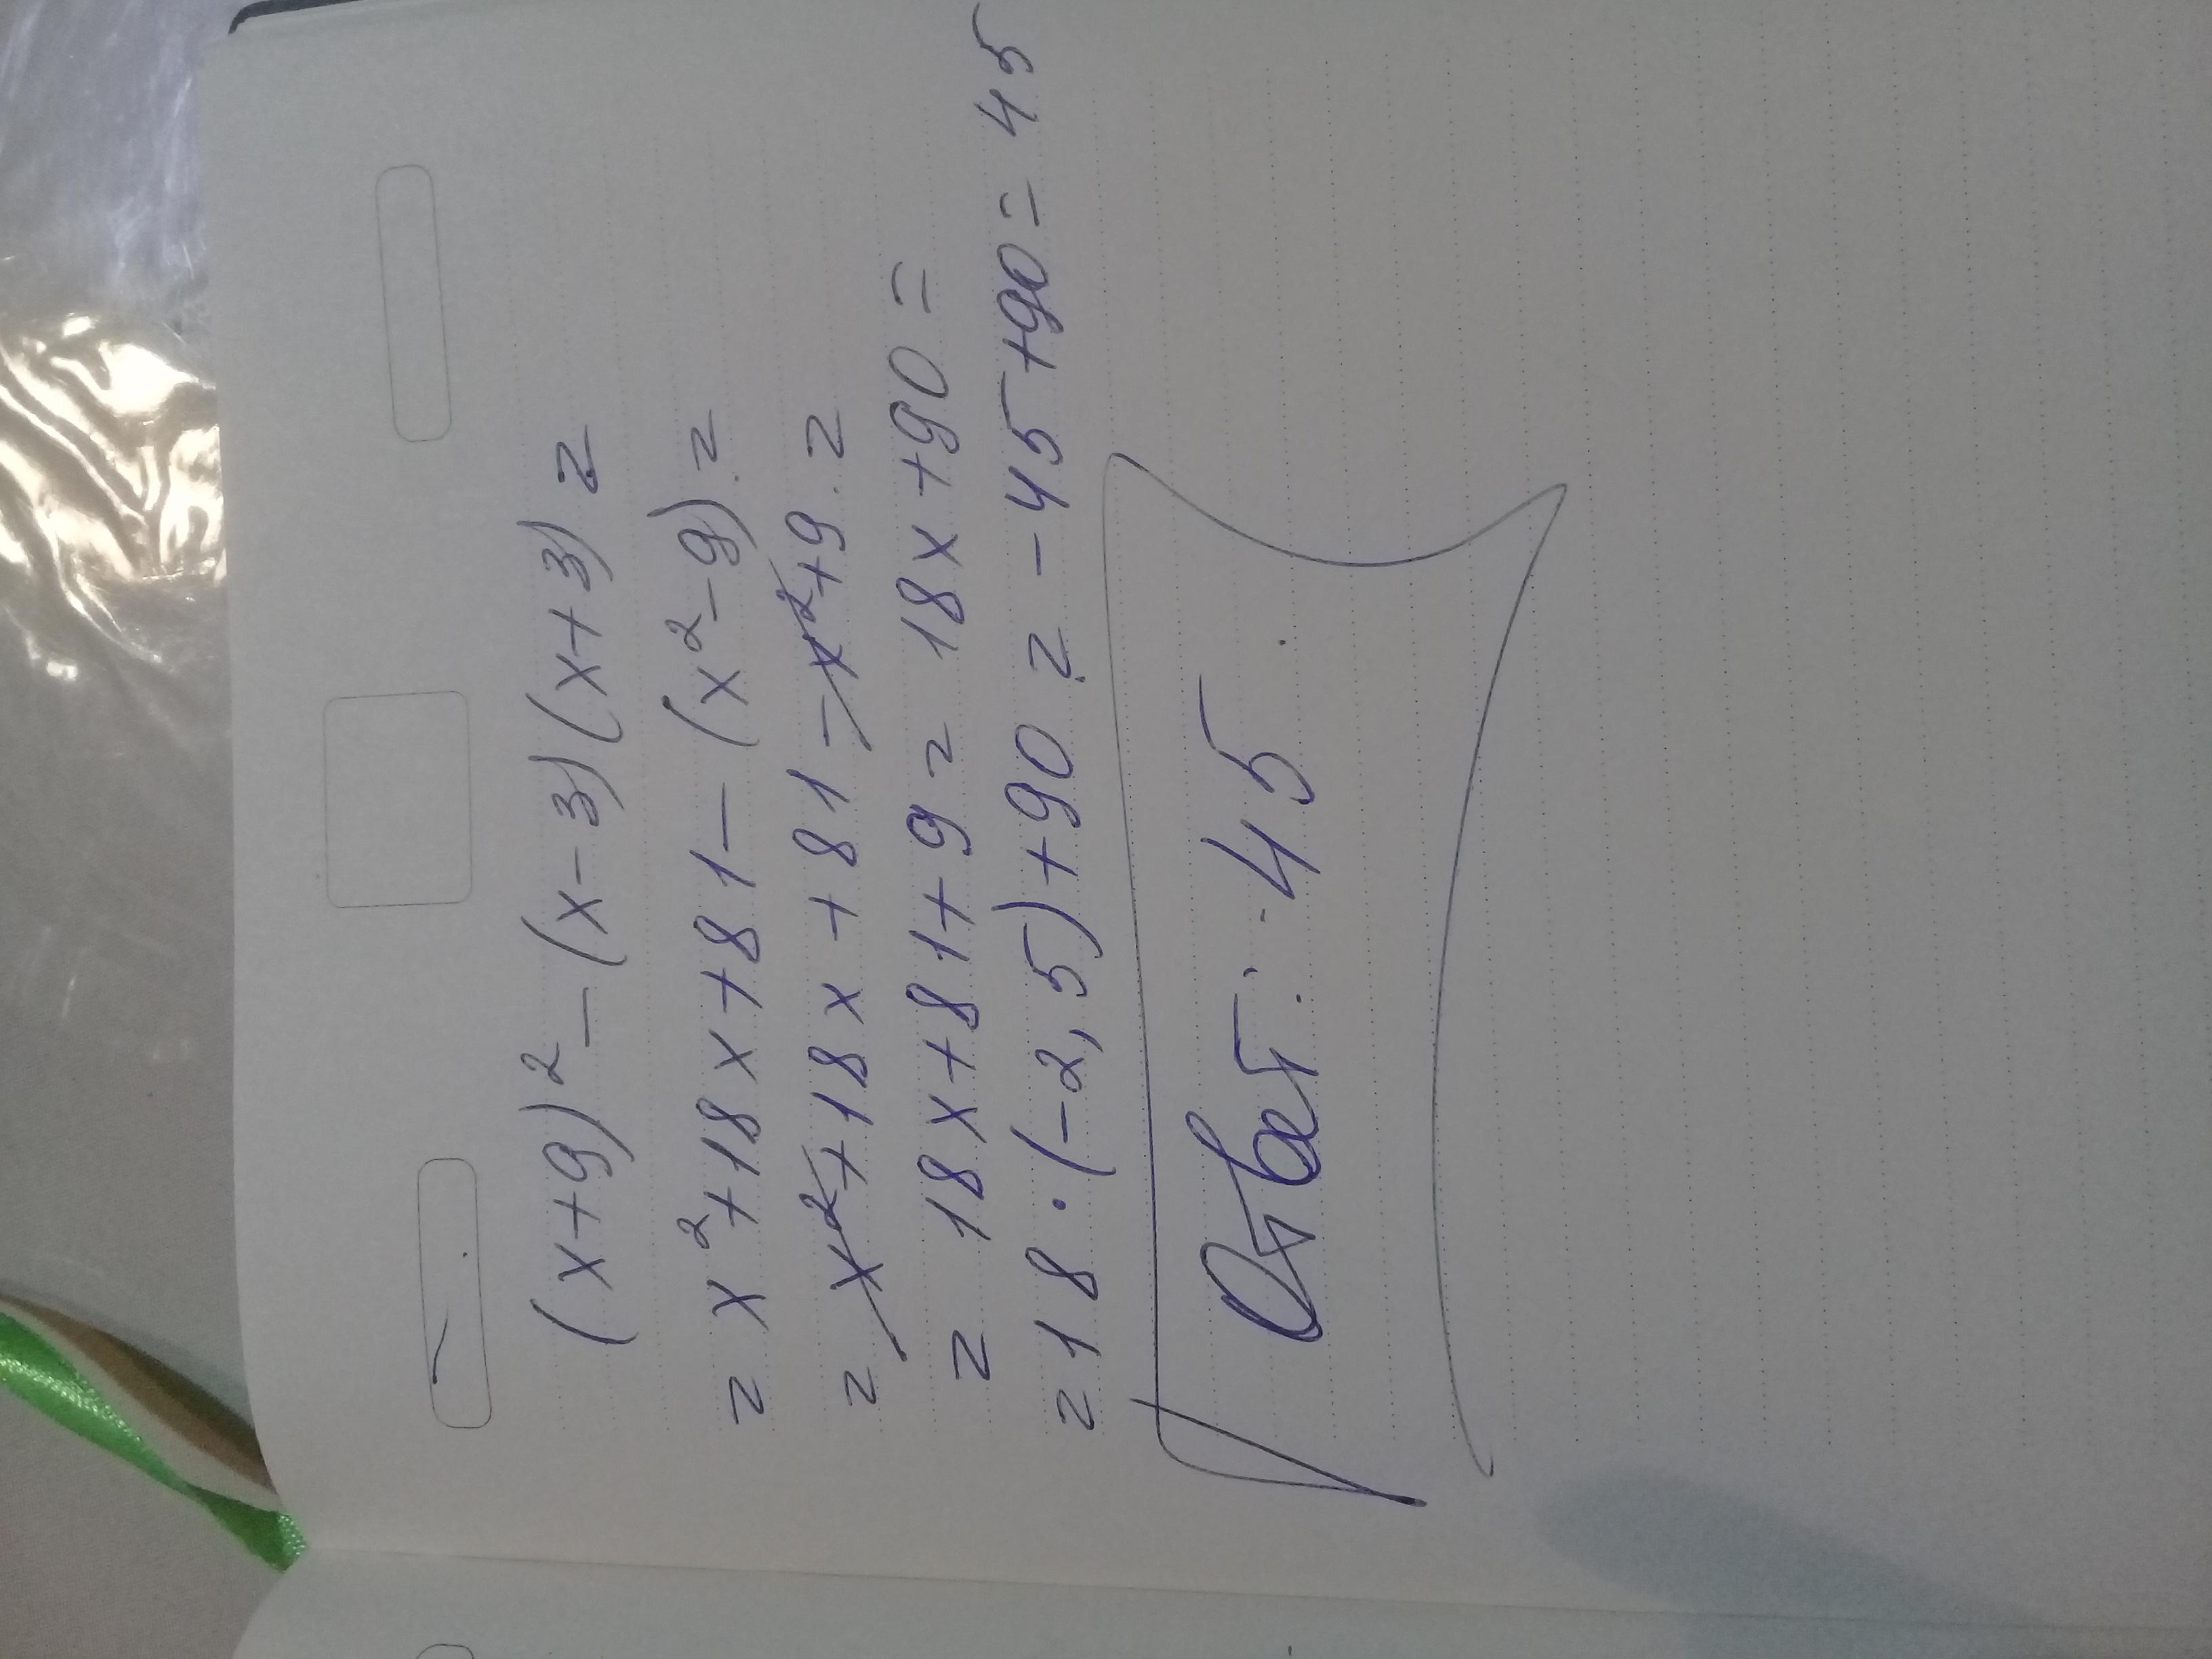 (x+9)² - (x-3)(x+3) =
= x² + 18x + 81 - (x² - 9) =
= x² + 18x + 81 - x² + 9 =
= 18x + 81 + 9 = 18x + 90 =
= 18 · (-2,5) + 90 = -45 + 90 = 45
Ответ: 45.